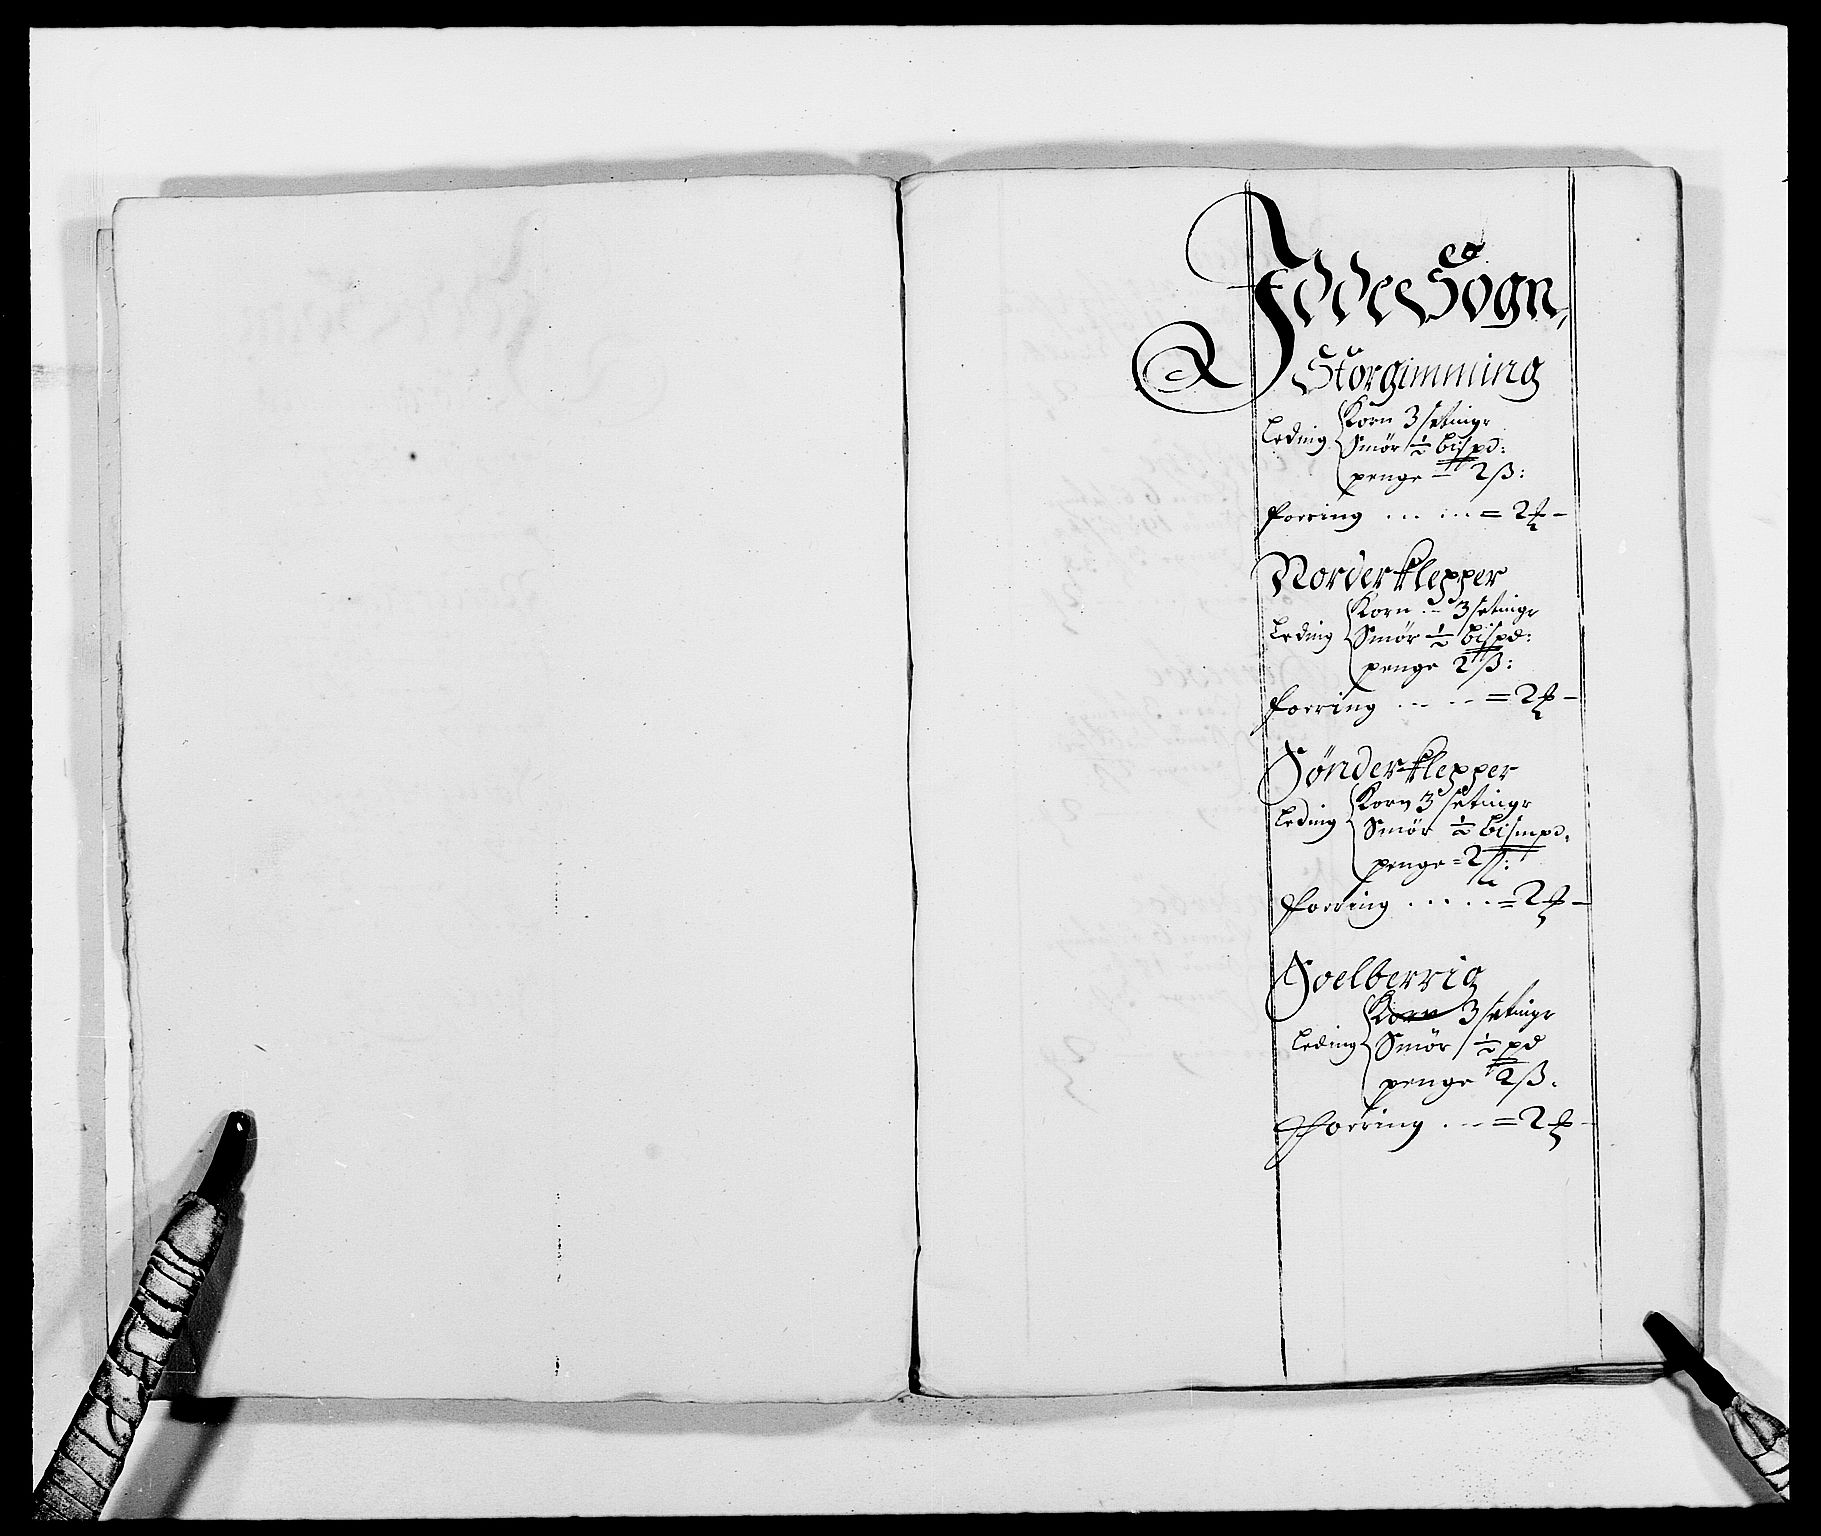 Idde Sogn,
Storgimming
Leding Korn 3 setingr
Smør ½ bispd:
penge = 2 ß:
foering ... ... = 2
Norder klepper
Leding Korn .. 3 setingr
Smør ½ bispd:
penge 2 ß:
foering ... .. = 2
Sønder klepper
Leding Korn 3 setingr
Smør ½ bismpd.
penge = 2 ß:
foering ..... = 2
Soelberrig
Leding Korn 3 setingr
Smør ½ pd
penge 2 ß.
foering ... = 2